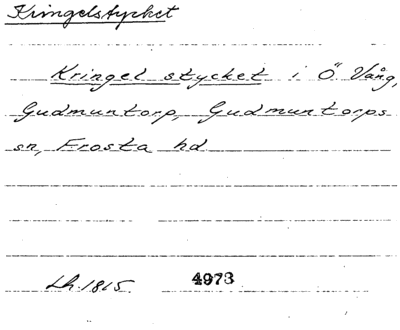 Kringelstycket
Kringel stycket i Ö. Vång,
Gudmuntorp, Gudmuntorps
sn, Frosta hd
Lh. 1815. 4973